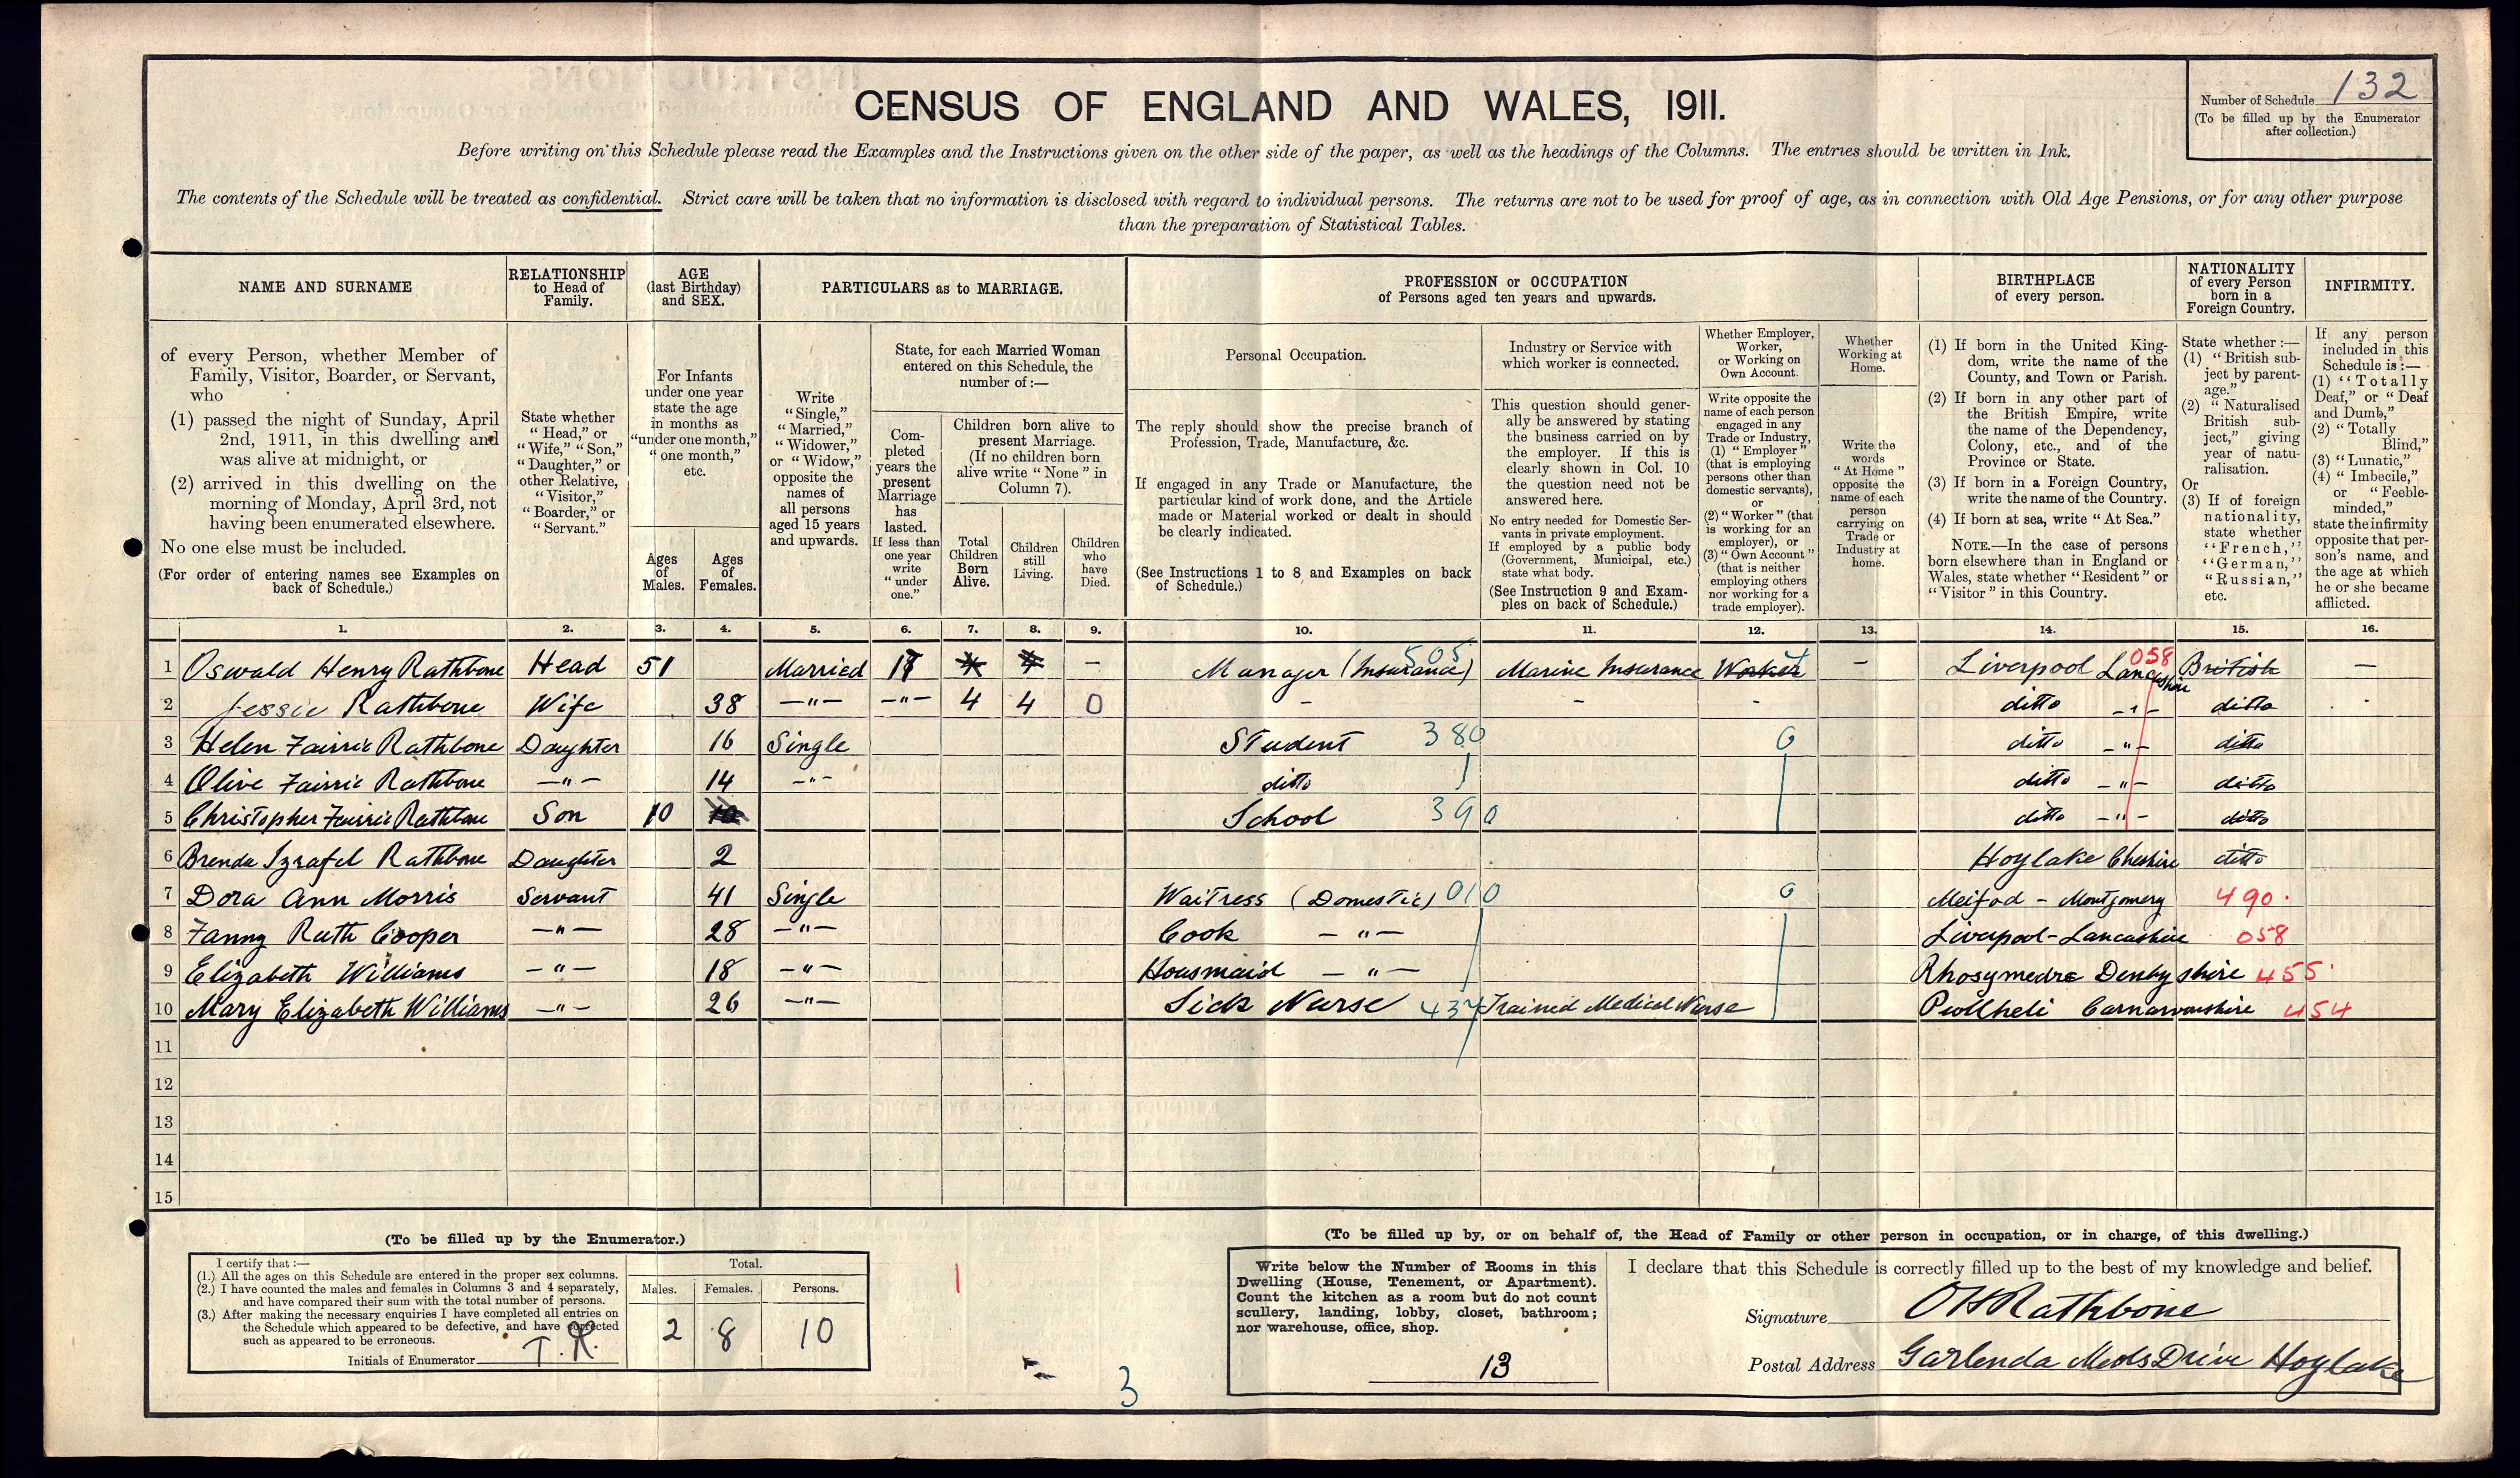 CENSUS OF ENGLAND AND WALES, 1911.
Number of Schedule 132
(To be filled up by the Enumerator
after collection.)
Before writing on this Schedule please read the Examples and the Instructions given on the other side of the paper, as well as the headings of the Columns. The entries should be written in Ink.
The contents of the Schedule will be treated as confidential. Strict care will be taken that no information is disclosed with regard to individual persons. The returns are not to be used for proof of age, as in connection with Old Age Pensions, or for any other purpose
than the preparation of Statistical Tables.
NAME AND SURNAME
of every Person, whether Member of
Family, Visitor, Boarder, or Servant,
who
(1) passed the night of Sunday, April
2nd, 1911, in this dwelling and
was alive at midnight, or
(2) arrived in this dwelling on the
morning of Monday, April 3rd, not
having been enumerated elsewhere.
No one else must be included.
(For order of entering names see Examples on
back of Schedule.)
RELATIONSHIP
to Head of
Family.
State whether
"Head," or
"Wife," "Son,"
"Daughter," or
other Relative,
"Visitor,"
"Boarder," or
"Servant."
AGE
(last Birthday)
and SEX.
For Infants
under one year
state the age
in months as
"under one month,"
"one month,"
etc.
Ages
of
Males.
Ages
of
Females.
PARTICULARS as to MARRIAGE.
Write
"Single,"
"Married,"
"Widower,"
or "Widow,"
opposite the
names of
all persons
aged 15 years
and upwards.
State, for each Married Woman
entered on this Schedule, the
number of:—
Com-
pleted
years the
present
Marriage
has
lasted.
If less than
one year
write
"under
one."
Children born alive to
present Marriage.
(If no children born
alive write "None" in
Column 7).
Total
Children
Born
Alive.
Children
still
Living.
Children
who
have
Died.
PROFESSION or OCCUPATION
of Persons aged ten years and upwards.
Personal Occupation.
The reply should show the precise branch of
Profession, Trade, Manufacture, &c.
If engaged in any Trade or Manufacture, the
particular kind of work done, and the Article
made or Material worked or dealt in should
be clearly indicated.
(See Instructions 1 to 8 and Examples on back
of Schedule.)
Industry or Service with
which worker is connected.
This question should gener-
ally be answered by stating
the business carried on by
the employer. If this is
clearly shown in Col. 10
the question need not be
answered here.
No entry needed for Domestic Ser-
vants in private employment.
If employed by a public body
(Government, Municipal, etc.)
state what body.
(See Instruction 9 and Exam-
ples on back of Schedule.)
Whether Employer,
Worker,
or Working on
Own Account.
Write opposite the
name of each person
engaged in any
Trade or Industry,
(1) "Employer"
(that is employing
persons other than
domestic servants),
or
(2) "Worker" (that
is working for an
employer), or
(3) "Own Account"
(that is neither
employing others
nor working for a
trade employer).
Whether
Working at
Home.
Write the
words
"At Home"
opposite the
name of each
person
carrying on
Trade or
Industry at
home.
BIRTHPLACE
of every person.
(1) If born in the United King-
dom, write the name of the
County, and Town or Parish.
(2) If born in any other part of
the British Empire, write
the name of the Dependency,
Colony, etc., and of the
Province or State.
(3) If born in a Foreign Country,
write the name of the Country.
(4) If born at sea, write "At Sea."
NOTE.—In the case of persons
born elsewhere than in England or
Wales, state whether "Resident" or
"Visitor" in this Country.
NATIONALITY
of every Person
born in a
Foreign Country.
State whether:—
(1) "British sub-
ject by parent-
age."
(2) "Naturalised
British sub-
ject," giving
year of natu-
ralisation.
Or
(3) If of foreign
nationality,
state whether
"French,"
"German,"
"Russian,"
etc.
INFIRMITY.
If any person
included in this
Schedule is:—
(1) "Totally
Deaf," or "Deaf
and Dumb,"
(2) "Totally
Blind,"
(3) "Lunatic,"
(4) "Imbecile,"
or "Feeble-
minded,"
state the infirmity
opposite that per-
son's name, and
the age at which
he or she became
afflicted.
1. 2. 3. 4. 5. 6. 7. 8. 9. 10. 11. 12. 13. 14. 15. 16.
1 Oswald Henry Rathbone Head 51 Married 18 4 4 — Manager (Insurance) 505 Marine Insurance Worker — Liverpool Lancashire 058 British —
2 Jessie Rathbone Wife 38 —"— —"— 4 4 0 - - - ditto —"— ditto -
3 Helen Fairrie Rathbone Daughter 16 Single Student 380 0 ditto —"— ditto
4 Olive Fairrie Rathbone —"— 14 —"— ditto ditto —"— ditto
5 Christopher Fairrie Rathbone Son 10 10 School 390 ditto —"— ditto
6 Brenda Izrafel Rathbone Daughter 2 Hoylake Cheshire ditto
7 Dora Ann Morris Servant 41 Single Waitress (Domestic) 010 0 Meifod - Montgomery 490.
8 Fanny Ruth Cooper —"— 28 —"— Cook —"— Liverpool - Lancashire 058
9 Elizabeth Williams —"— 18 —"— Housmaid —"— Rhosymedre Denbyshire 455
10 Mary Elizabeth Williams —"— 26 —"— Sick Nurse 437 Trained Medical Nurse Pwllheli Carnarvonshire 454
11
12
13
14
15
(To be filled up by the Enumerator.)
I certify that:—
(1.) All the ages on this Schedule are entered in the proper sex columns.
(2.) I have counted the males and females in Columns 3 and 4 separately,
and have compared their sum with the total number of persons.
(3.) After making the necessary enquiries I have completed all entries on
the Schedule which appeared to be defective, and have corrected
such as appeared to be erroneous.
Initials of Enumerator T.R.
Total.
Males. Females. Persons.
2 8 10
1
3
(To be filled up by, or on behalf of, the Head of Family or other person in occupation, or in charge, of this dwelling.)
Write below the Number of Rooms in this
Dwelling (House, Tenement, or Apartment).
Count the kitchen as a room but do not count
scullery, landing, lobby, closet, bathroom;
nor warehouse, office, shop.
13
I declare that this Schedule is correctly filled up to the best of my knowledge and belief.
Signature OHRathbone
Postal Address Garlenda Meols Drive Hoylake